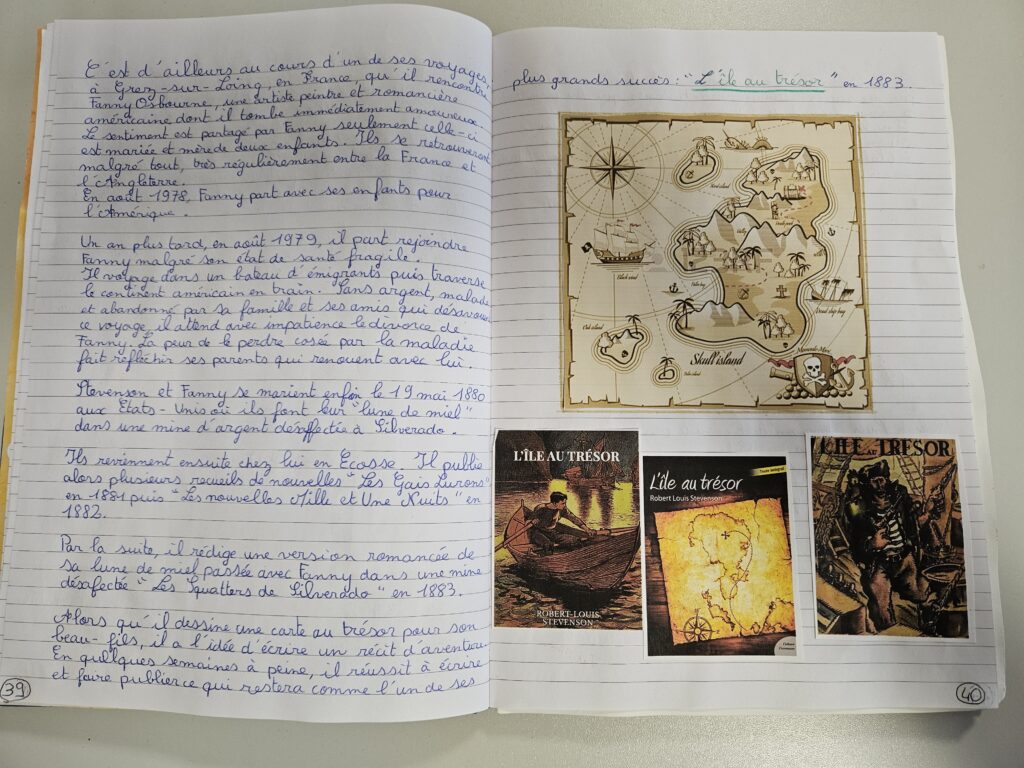 C'est d'ailleurs au cours d'un de ses voyages,
à Grez-sur-Loing, en France, qu'il rencontre
Fanny Osbourne, une artiste peintre et romancière
américaine dont il tombe immédiatement amoureux.
Le sentiment est partagé par Fanny seulement celle-ci
est mariée et mère de deux enfants. Ils se retrouveront
malgré tout, très régulièrement entre la France et
l'Angleterre.
En août 1978, Fanny part avec ses enfants pour
l'Amérique.
Un an plus tard, en août 1979, il part rejoindre
Fanny malgré son état de santé fragile.
Il voyage dans un bateau d'émigrants puis traverse
le continent américain en train. Sans argent, malade
et abandonné par sa famille et ses amis qui désavouent
ce voyage, il attend avec impatience le divorce de
Fanny. La peur de le perdre cosée par la maladie
fait réfléchir ses parents qui renouent avec lui.
Stevenson et Fanny se marient enfin le 19 mai 1880
aux Etats-Unis où ils font leur "lune de miel"
dans une mine d'argent désaffectée à Silverado.
Ils reviennent ensuite chez lui en Ecosse. Il publie
alors plusieurs recueils de nouvelles "Les Gais Lurons"
en 1881 puis "Les nouvelles Mille et Une Nuits" en
1882.
Par la suite, il rédige une version romancée de
sa lune de miel passée avec Fanny dans une mine
désafectée "Les Squatters de Silverado" en 1883.
Alors qu'il dessine une carte au trésor pour son
beau-fils, il a l'idée d'écrire un récit d'aventure
En quelques semaines à peine, il réussit à écrire
et faire publier ce qui restera comme l'un de ses
39
plus grands succès : "L'île au trésor" en 1883.
Black wind
Dead ship bay
Oak island
Skull island
L'ÎLE AU TRÉSOR
ROBERT-LOUIS
STEVENSON
Texte intégral
L'île au trésor
Robert Louis Stevenson
L'ÎLE AU TRÉSOR
40